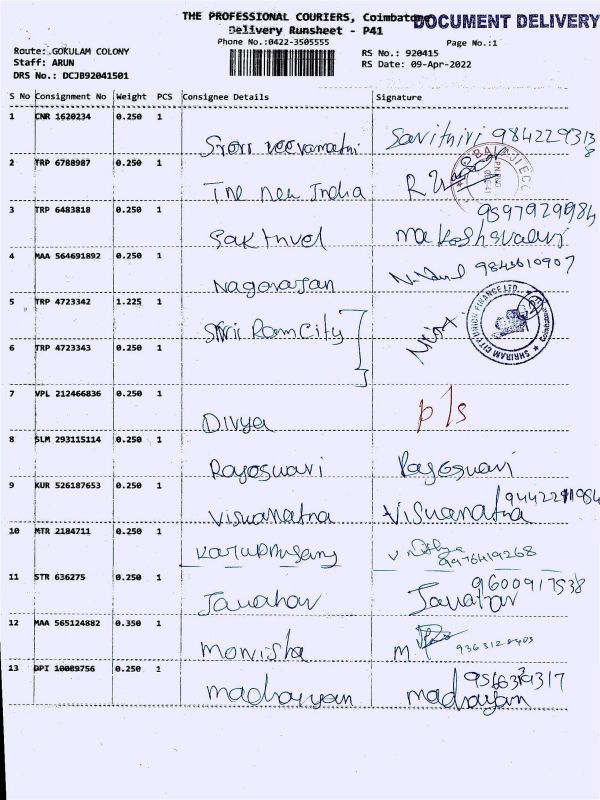 THE PROFESSIONAL COURIERS, Coimbatore
DOCUMENT DELIVERY
Delivery Runsheet - P41
Phone No.:0422-3505555
Page No.:1
Route: GOKULAM COLONY
RS No.: 920415
Staff: ARUN
RS Date: 09-Apr-2022
DRS No.: DCJB92041501
S No Consignment No Weight PCS Consignee Details Signature
1 CNR 1620234 0.250 1
2 TRP 6788987 0.250 1 The new India
3 TRP 6483818 0.250 1 Sakthvel
9597929984
4 MAA 564691892 0.250 1 Nagarajan 9843610907
5 TRP 4723342 1.225 1 Shri Ram City
SHRIRAM CITY UNION FINANCE LTD.,
6 TRP 4723343 0.250 1
7 VPL 212466836 0.250 1 Divya p/s
8 SLM 293115114 0.250 1 Rajeswari Rajeswari
9 KUR 526187653 0.250 1 Viswanatha Viswanatha
10 MTR 2184711 0.250 1 9976419268
11 STR 636275 0.250 1 Jawahar Jawahar 9600917538
12 MAA 565124882 0.350 1 Monisha
13 DPI 10089756 0.250 1 madhaiyan madhaiyan